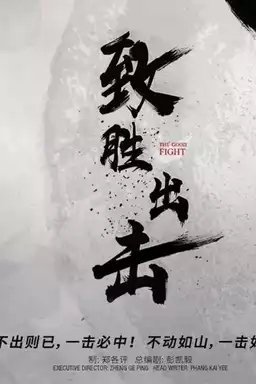 致
胜
出
击
THE GOOD
FIGHT
不出则已，一击必中！ 不动如山，一击如
制: 郑各评 总编剧: 彭凯毅
EXECUTIVE DIRECTOR: ZHENG GE PING HEAD WRITER: PHANG KAI YEE